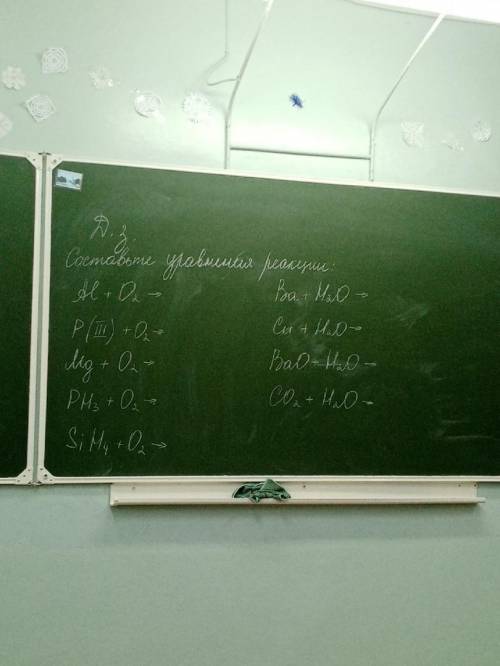 Д.з.
Составьте уравнения реакции:
Al + O₂ →
P (III) + O₂ →
Mg + O₂ →
PH₃ + O₂ →
SiH₄ + O₂ →
Ba + H₂O →
Cu + H₂O →
BaO + H₂O →
CO₂ + H₂O →